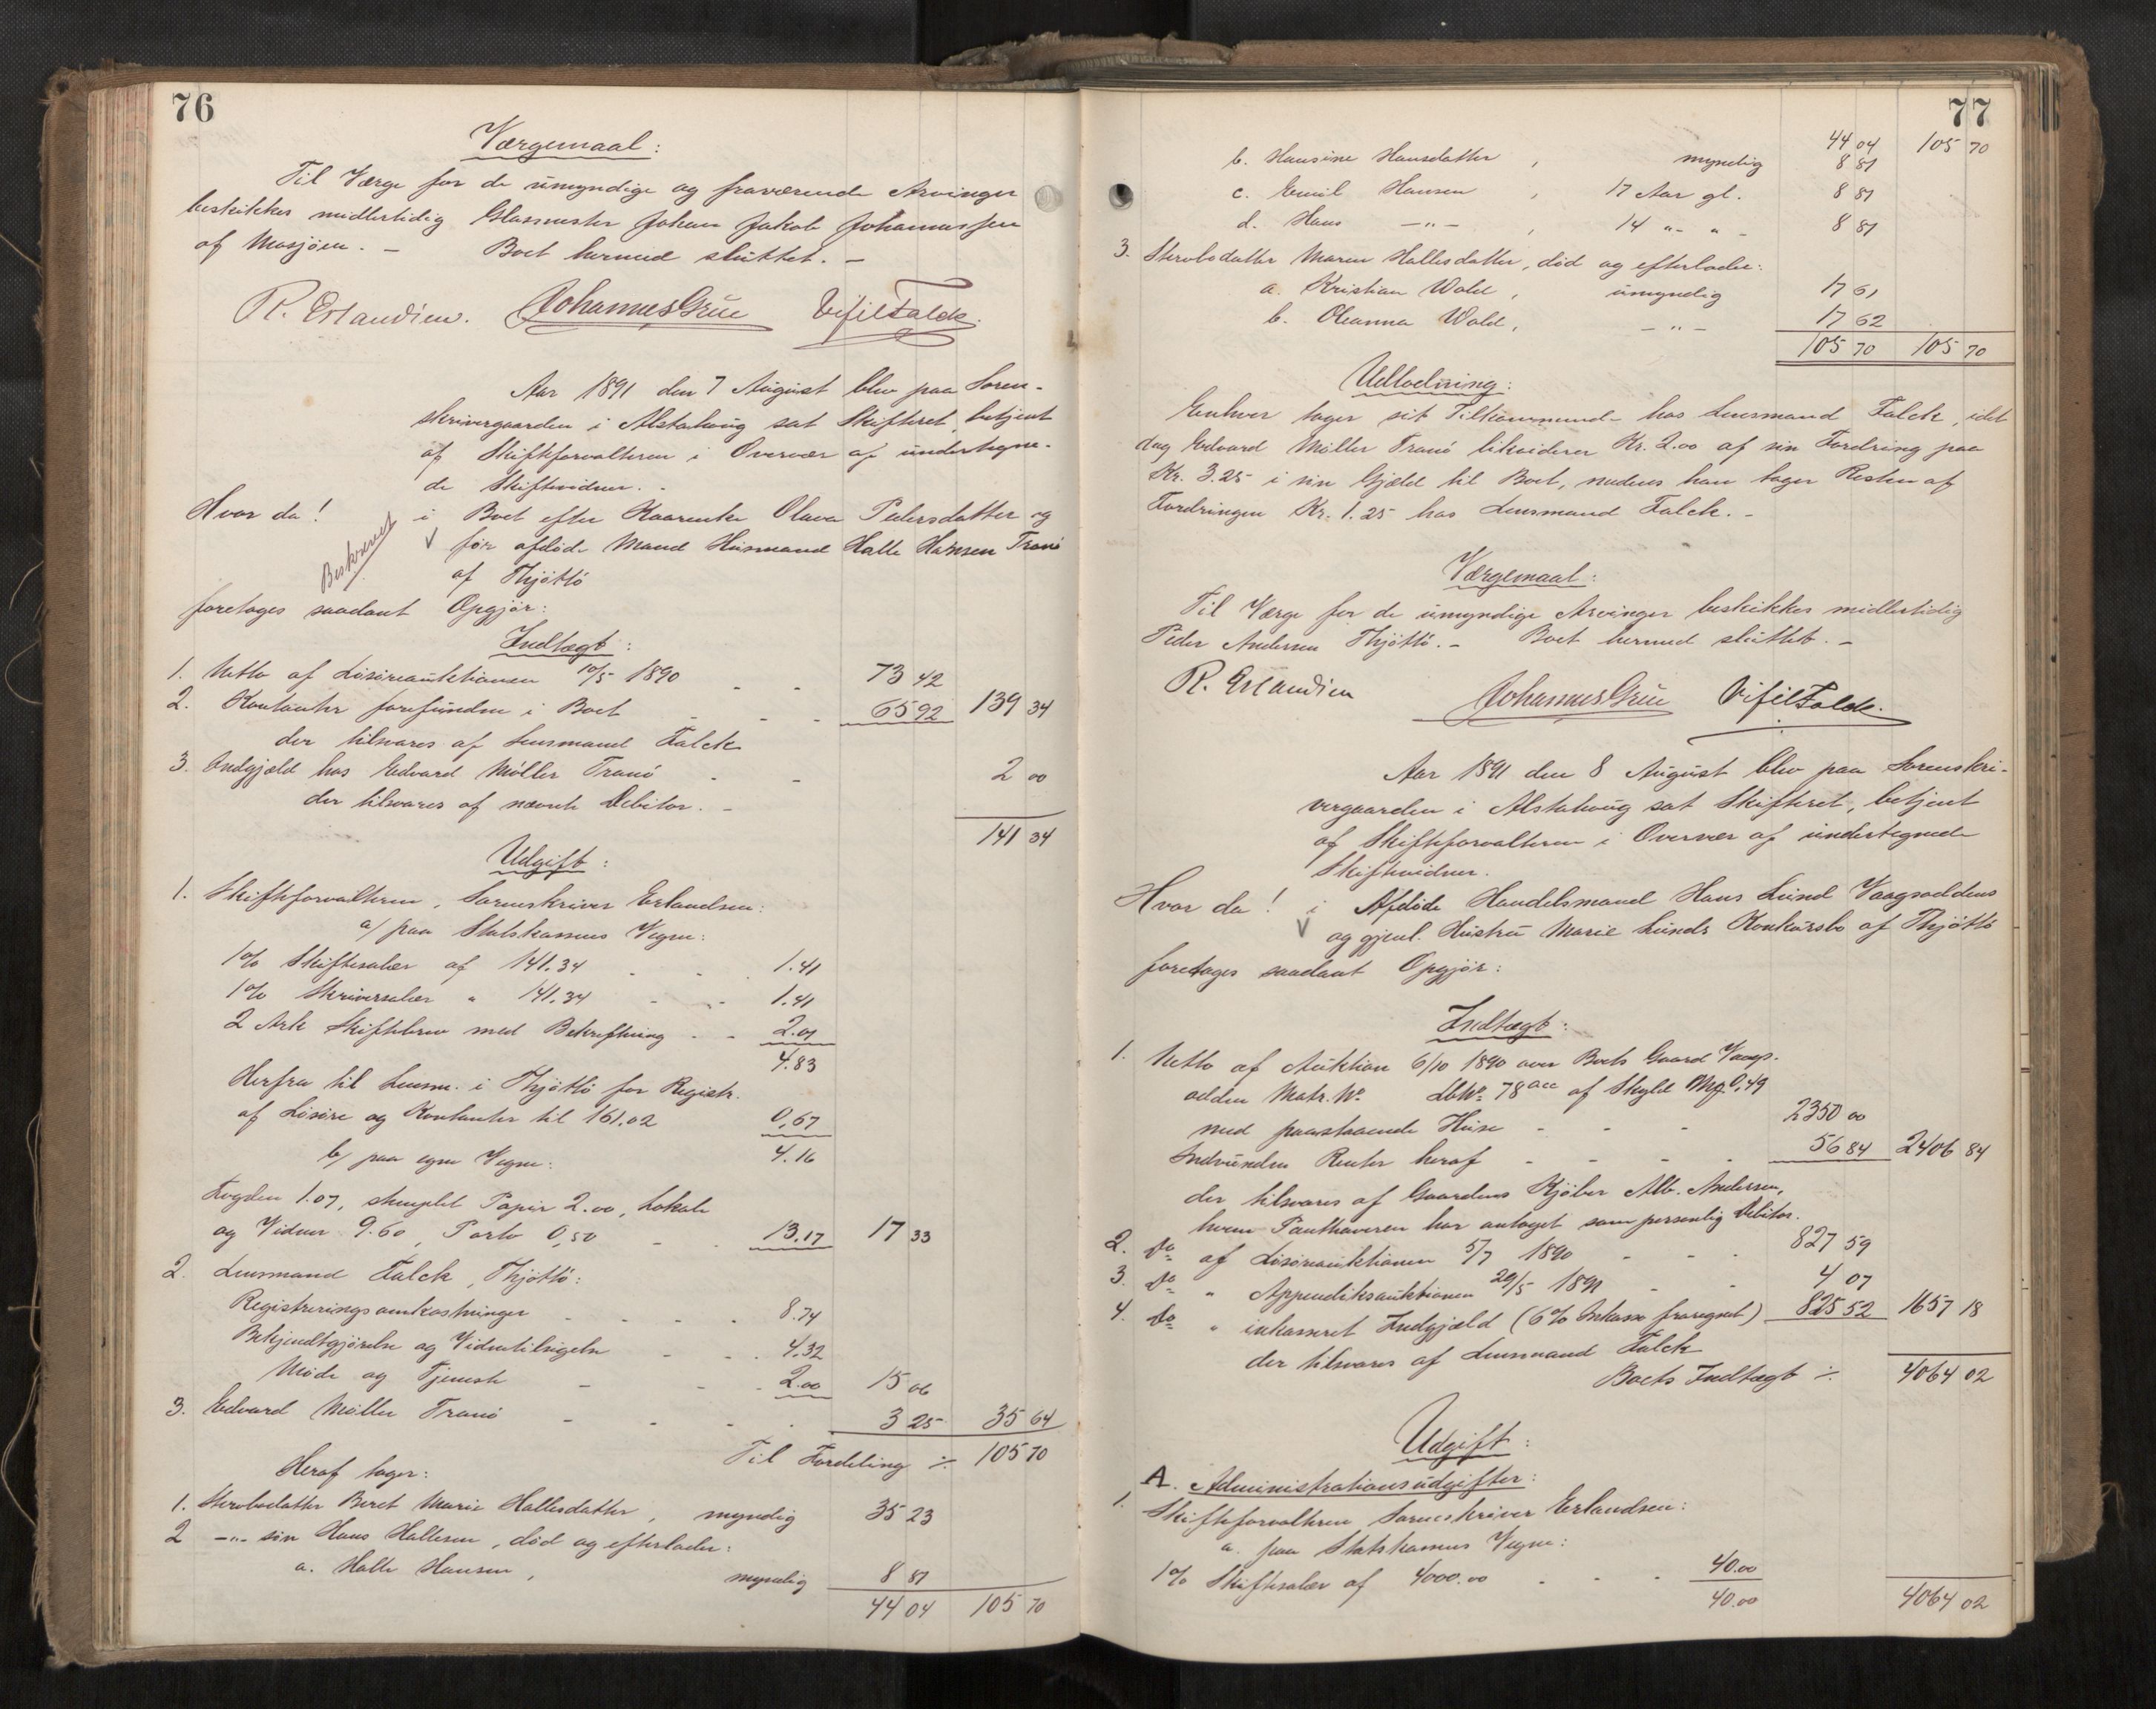 76
Værgemaal:
Til Værge for de umyndige og fraværende Arvinger
beskikkes midlertidig Glasmester Johan Jakob Johannessen
af Mosjøen. – Boet hermed sluttet. –
R. Erlandsen. Johannes Grüe Vifil Falck.
Aar 1891 den 7 August blev paa Soren-
skrivergaarden i Alstahoug sat Skifteret, betjent
af Skifteforvalteren i Overvær af undertegne-
de Skiftevidner. –
Hvor da! i Boet efter Kaarenke Olava Pedersdatter og
Beskrevet
før afdøde Mand Husmand Halle Hansen Tranö
af Thjöttö
foretages saadant Opgjör:
Indtægt:
1. Netto af Lösöreauktionen 10/5 1890 - - 73 42
2. Kontanter forefunden i Boet - - - 65 92 139 34
der tilsvares af Lensmand Falck
3. Indgjæld hos Edvard Möller Tranö - - 2 00
der tilsvares af nævnte Debitor. –
141 34
Udgift:
1. Skifteforvalteren, Sorenskriver Erlandsen:
a/ paa Statskassens Vegne:
1% Skiftesalær af 141.34 - - 1.41
1% Skriversalær " 141.34 - - 1.41
2 Ark Skiftebrev med Bekreftning - - 2.01
4.83
Herfra til Lensm. i Thjöttö for Registr.
af Lösöre og Kontanter til 161.02 0,67
b/ paa egne Vegne: 4.16
Fogden 1.07, stemplet Papir 2.00, Lokale
og Vidner 9.60, Porto 0,50 - - 13.17 17 33
2. Lensmand Falck, Thjöttö:
Registreringsomkostninger - - - - 8.74
Bekjendtgjörelse og Vidnetilsigelse - - 4.32
Möde og Tjeneste - - - 2.00 15 06
3. Edvard Möller Tranö - - - - 3 25 35 64
Til Fordeling ./. 105 70
Heraf tager:
1. Stervbodatter Beret Marie Hallesdatter, myndig 35 23
2 –"– sön Hans Hallesen, död og efterlader:
a. Halle Hansen, myndig 8 81
44 04 105 70
77
44 04 105 70
b. Hansine Hansdatter, myndig 8 81
c. Emil Hansen, 17 Aar gl. 8 81
d. Hans –"–, 14 "– "– 8 81
3. Stervbodatter Maren Hallesdatter, död og efterlader:
a. Kristian Wold, umyndig 17 61
b. Oleanna Wold, –"– 17 62
105 70 105 70
Udlodning:
Enhver tager sit Tilkommende hos Lensmand Falck, idet
dog Edvard Möller Tranö likviderer Kr. 2.00 af sin Fordring paa
Kr. 3.25 i sin Gjæld til Boet, medens han tager Resten af
Fordringen Kr. 1.25 hos Lensmand Falck. –
Værgemaal:
Til Værge for de umyndige Arvinger beskikkes midlertidig
Peder Andersen Thjöttö. – Boet hermed sluttet. –
R. Erlandsen Johannes Grüe Vifil Falck.
Aar 1891 den 8 August blev paa Sorenskri-
vergaarden i Alstahoug sat Skifteret, betjent
af Skifteforvalteren i Overvær af undertegnede
Skiftevidner.
Hvor da! i Afdöde Handelsmand Hans Lund Vaagsoddens
og gjenl. Hustru Marie Lunds Konkursbo af Thjöttö
foretages saadant Opgjör:
Indtægt:
1. Netto af Auktion 6/10 1890 over Boets Gaard Vaags-
odden Matr. No LbNo 78 af Skyld Mrk 0,49
med paastaaende Huse - - - 2350 00
Indvundne Renter heraf - - - - 56 84 2406 84
der tilsvares af Gaardens Kjöber Alb. Andersen,
hvem Panthaveren har antaget som personlig Debitor.
2. Do af Lösöreauktionen 5/7 1890 - - - 827 59
3. Do " Appendiksauktionen 29/5 1891 - - 4 07
4. Do " inkasseret Indgjæld (6% Inkasso fraregnet) 825 52 1657 18
der tilsvares af Lensmand Falck
Boets Indtægt ./. 4064 02
Udgift:
A. Administrationsudgifter:
1. Skifteforvalteren Sorenskriver Erlandsen:
a. paa Statskassens Vegne:
1% Skiftesalær af 4000.00 - - - 40.00
40.00 4064 02